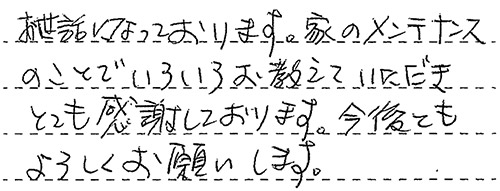 お世話になっております。家のメンテナンス
のことでいろいろお教えていただき
とても感謝しております。今後とも
よろしくお願いします。